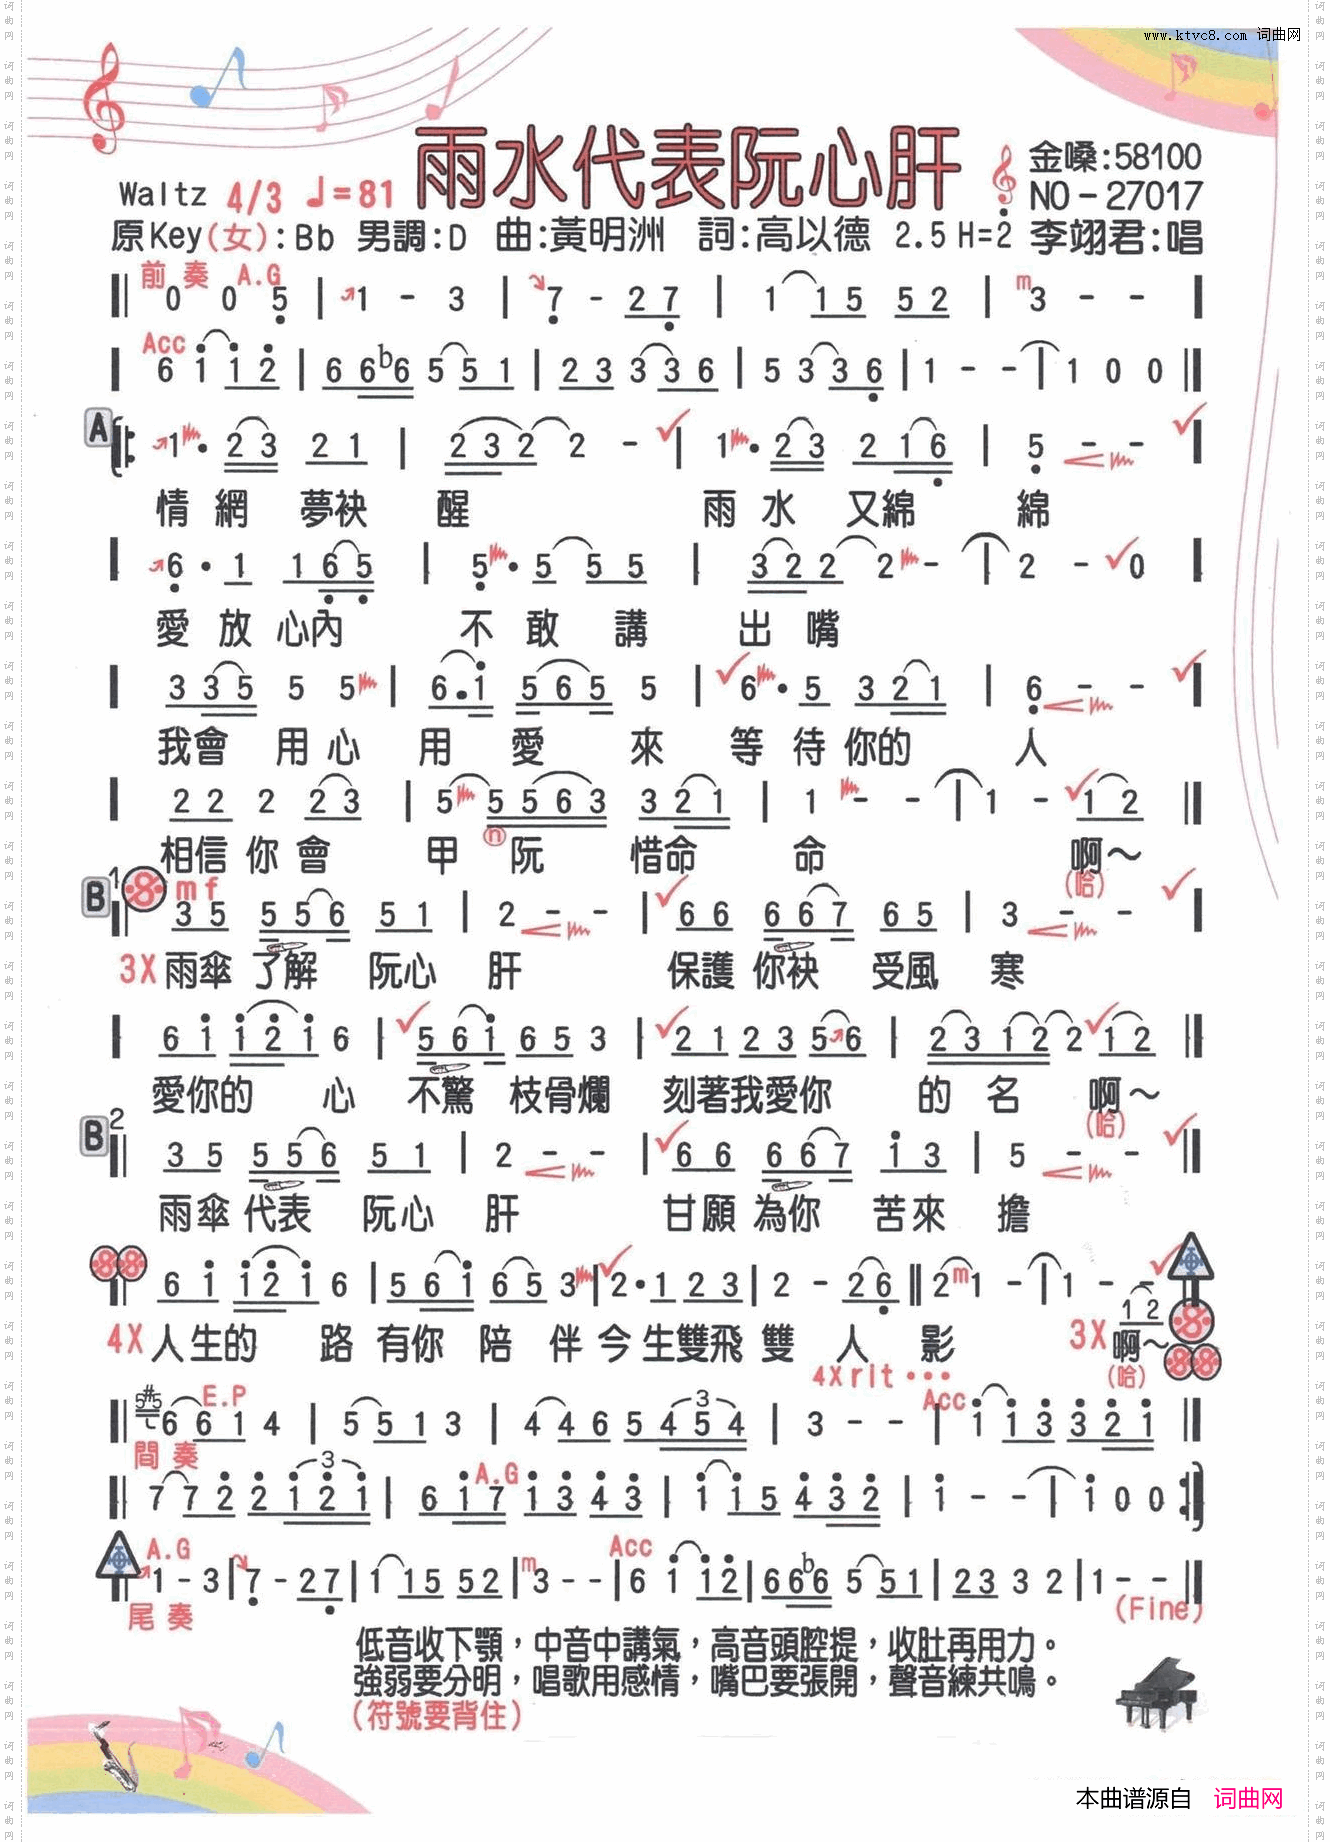 www.ktvc8.com 词曲网
雨水代表阮心肝
金嗓:58100
Waltz 4/3 ♩=81
NO-27017
原Key(女):Bb 男調:D 曲:黃明洲 詞:高以德 2.5H=2̇ 李翊君:唱
前奏 A.G
0 0 5 | 1 - 3 | 7 - 2 7 | 1 1 5 5 2 | m 3 - - |
Acc
6 1 1 2 | 6 6 b6 5 5 1 | 2 3 3 3 6 | 5 3 3 6 | 1 - - | 1 0 0 ‖
A
1 · 2 3 2 1 | 2 3 2 2 - | 1 · 2 3 2 1 6 | 5 - - |
情網 夢袂醒 雨水 又綿 綿
6 · 1 1 6 5 | 5 · 5 5 5 | 3 2 2 2 - | 2 - 0 |
愛放心內 不敢講 出嘴
3 3 5 5 5 | 6 · 1 5 6 5 5 | 6 · 5 3 2 1 | 6 - - |
我會 用心 用 愛 來 等待你的 人
2 2 2 2 3 | 5 5 5 6 3 3 2 1 | 1 - - | 1 - 1 2 ‖
相信你會 甲 ⓝ 阮 惜命 命 啊～
(哈)
B1 mf
3 5 5 5 6 5 1 | 2 - - | 6 6 6 6 7 6 5 | 3 - - |
3X 雨傘 了解 阮心 肝 保護 你袂 受風 寒
6 1 1 2 1 6 | 5 6 1 6 5 3 | 2 1 2 3 5 6 | 2 3 1 2 2 1 2 ‖
愛你的 心 不驚 枝骨爛 刻著我愛你 的名 啊～
(哈)
B2
3 5 5 5 6 5 1 | 2 - - | 6 6 6 6 7 1 3 | 5 - - ‖
雨傘 代表 阮心 肝 甘願 為你 苦來 擔
6 1 1 2 1 6 | 5 6 1 6 5 3 | 2 · 1 2 3 | 2 - 2 6 ‖ 2 m 1 - | 1 - -
1 2
4X 人生的 路 有你 陪 伴 今生雙飛 雙 人 影 3X 啊～
4X rit ··· (哈)
5 #5 E.P Acc
6 6 1 4 | 5 5 1 3 | 4 4 6 5 4 5 4 | 3 - - | 1 1 3 3 2 1 ‖
3
間奏
3 A.G
7 7 2 2 1 2 1 | 6 1 7 1 3 4 3 | 1 1 5 4 3 2 | 1 - - | 1 0 0
A.G Acc
1 - 3 | 7 - 2 7 | 1 1 5 5 2 | m 3 - - | 6 1 1 2 | 6 6 b6 5 5 1 | 2 3 3 2 | 1 - - ‖
尾奏 (Fine)
低音收下顎，中音中講氣，高音頭腔提，收肚再用力。
強弱要分明，唱歌用感情，嘴巴要張開，聲音練共鳴。
(符號要背住)
本曲谱源自 词曲网